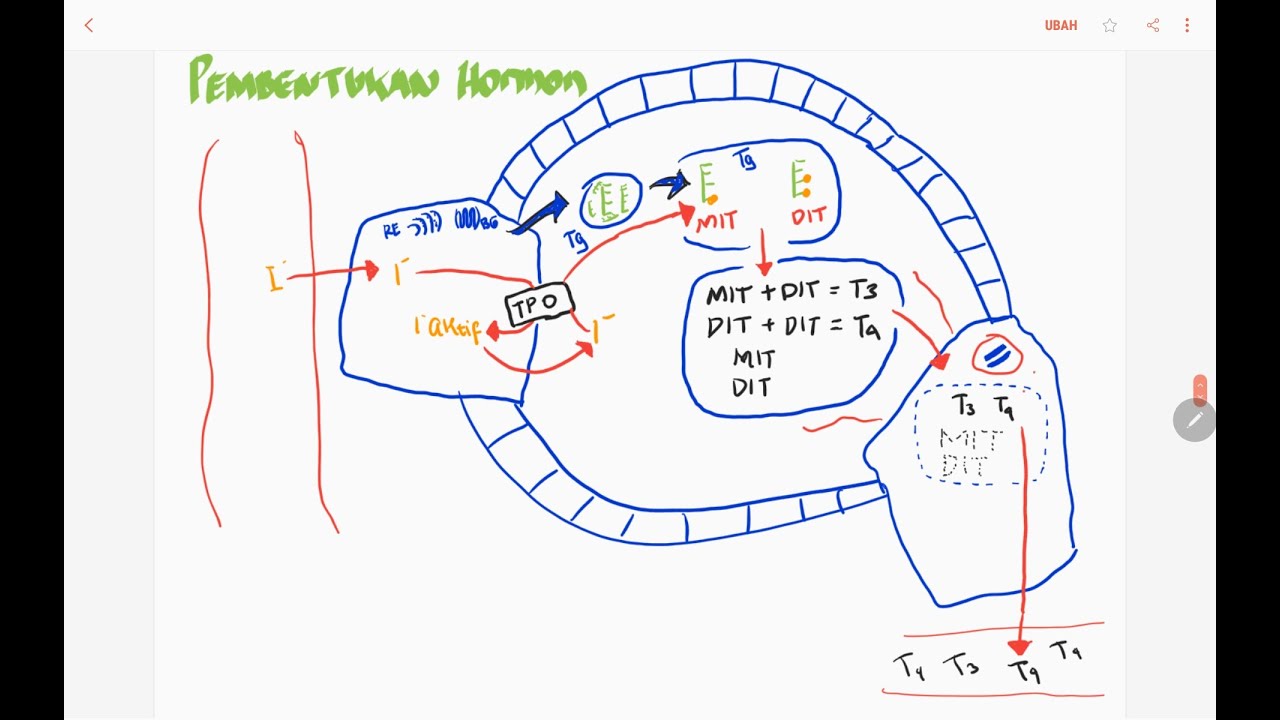 UBAH
PEMBENTUKAN HORMON
RE BG
Tg
Tg
MIT DIT
I⁻ I⁻
TPO
I⁻ aktif I⁻
MIT + DIT = T3
DIT + DIT = T4
MIT
DIT
T3 T4
MIT
DIT
T4 T3 T4 T4